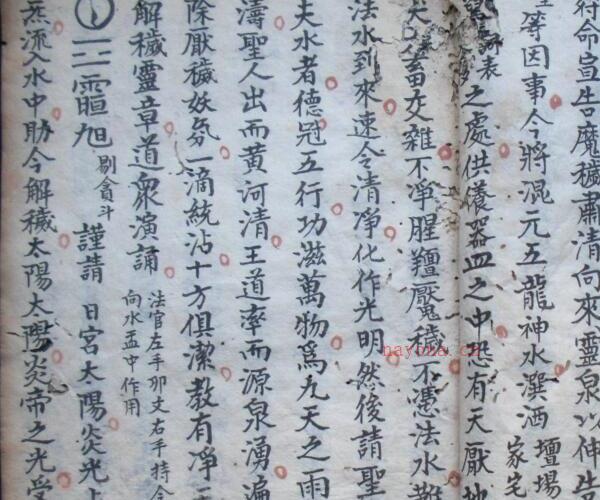 符命宣告魔穢肅清向來靈泉以伸
等因事今將混元五龍神水潠洒壇場家宅
之處供養器皿之中恐有天厭
犬畜交雜不淨腥羶厭穢不憑法水難
法水到來速令清淨化作光明然後請聖
夫水者德冠五行功滋萬物爲九天之雨
濤聖人出而黃河清王道率而源泉湧遍
除厭穢妖氛一滴統沾十方俱潔教有淨
解穢靈章道衆演誦 法官左手那文右手持
向水盂中作用
三 旭 剔貪斗 謹請 日宮太陽炎光
炁流入水中助今解穢太陽太陽炎帝之光受
nayona.cn